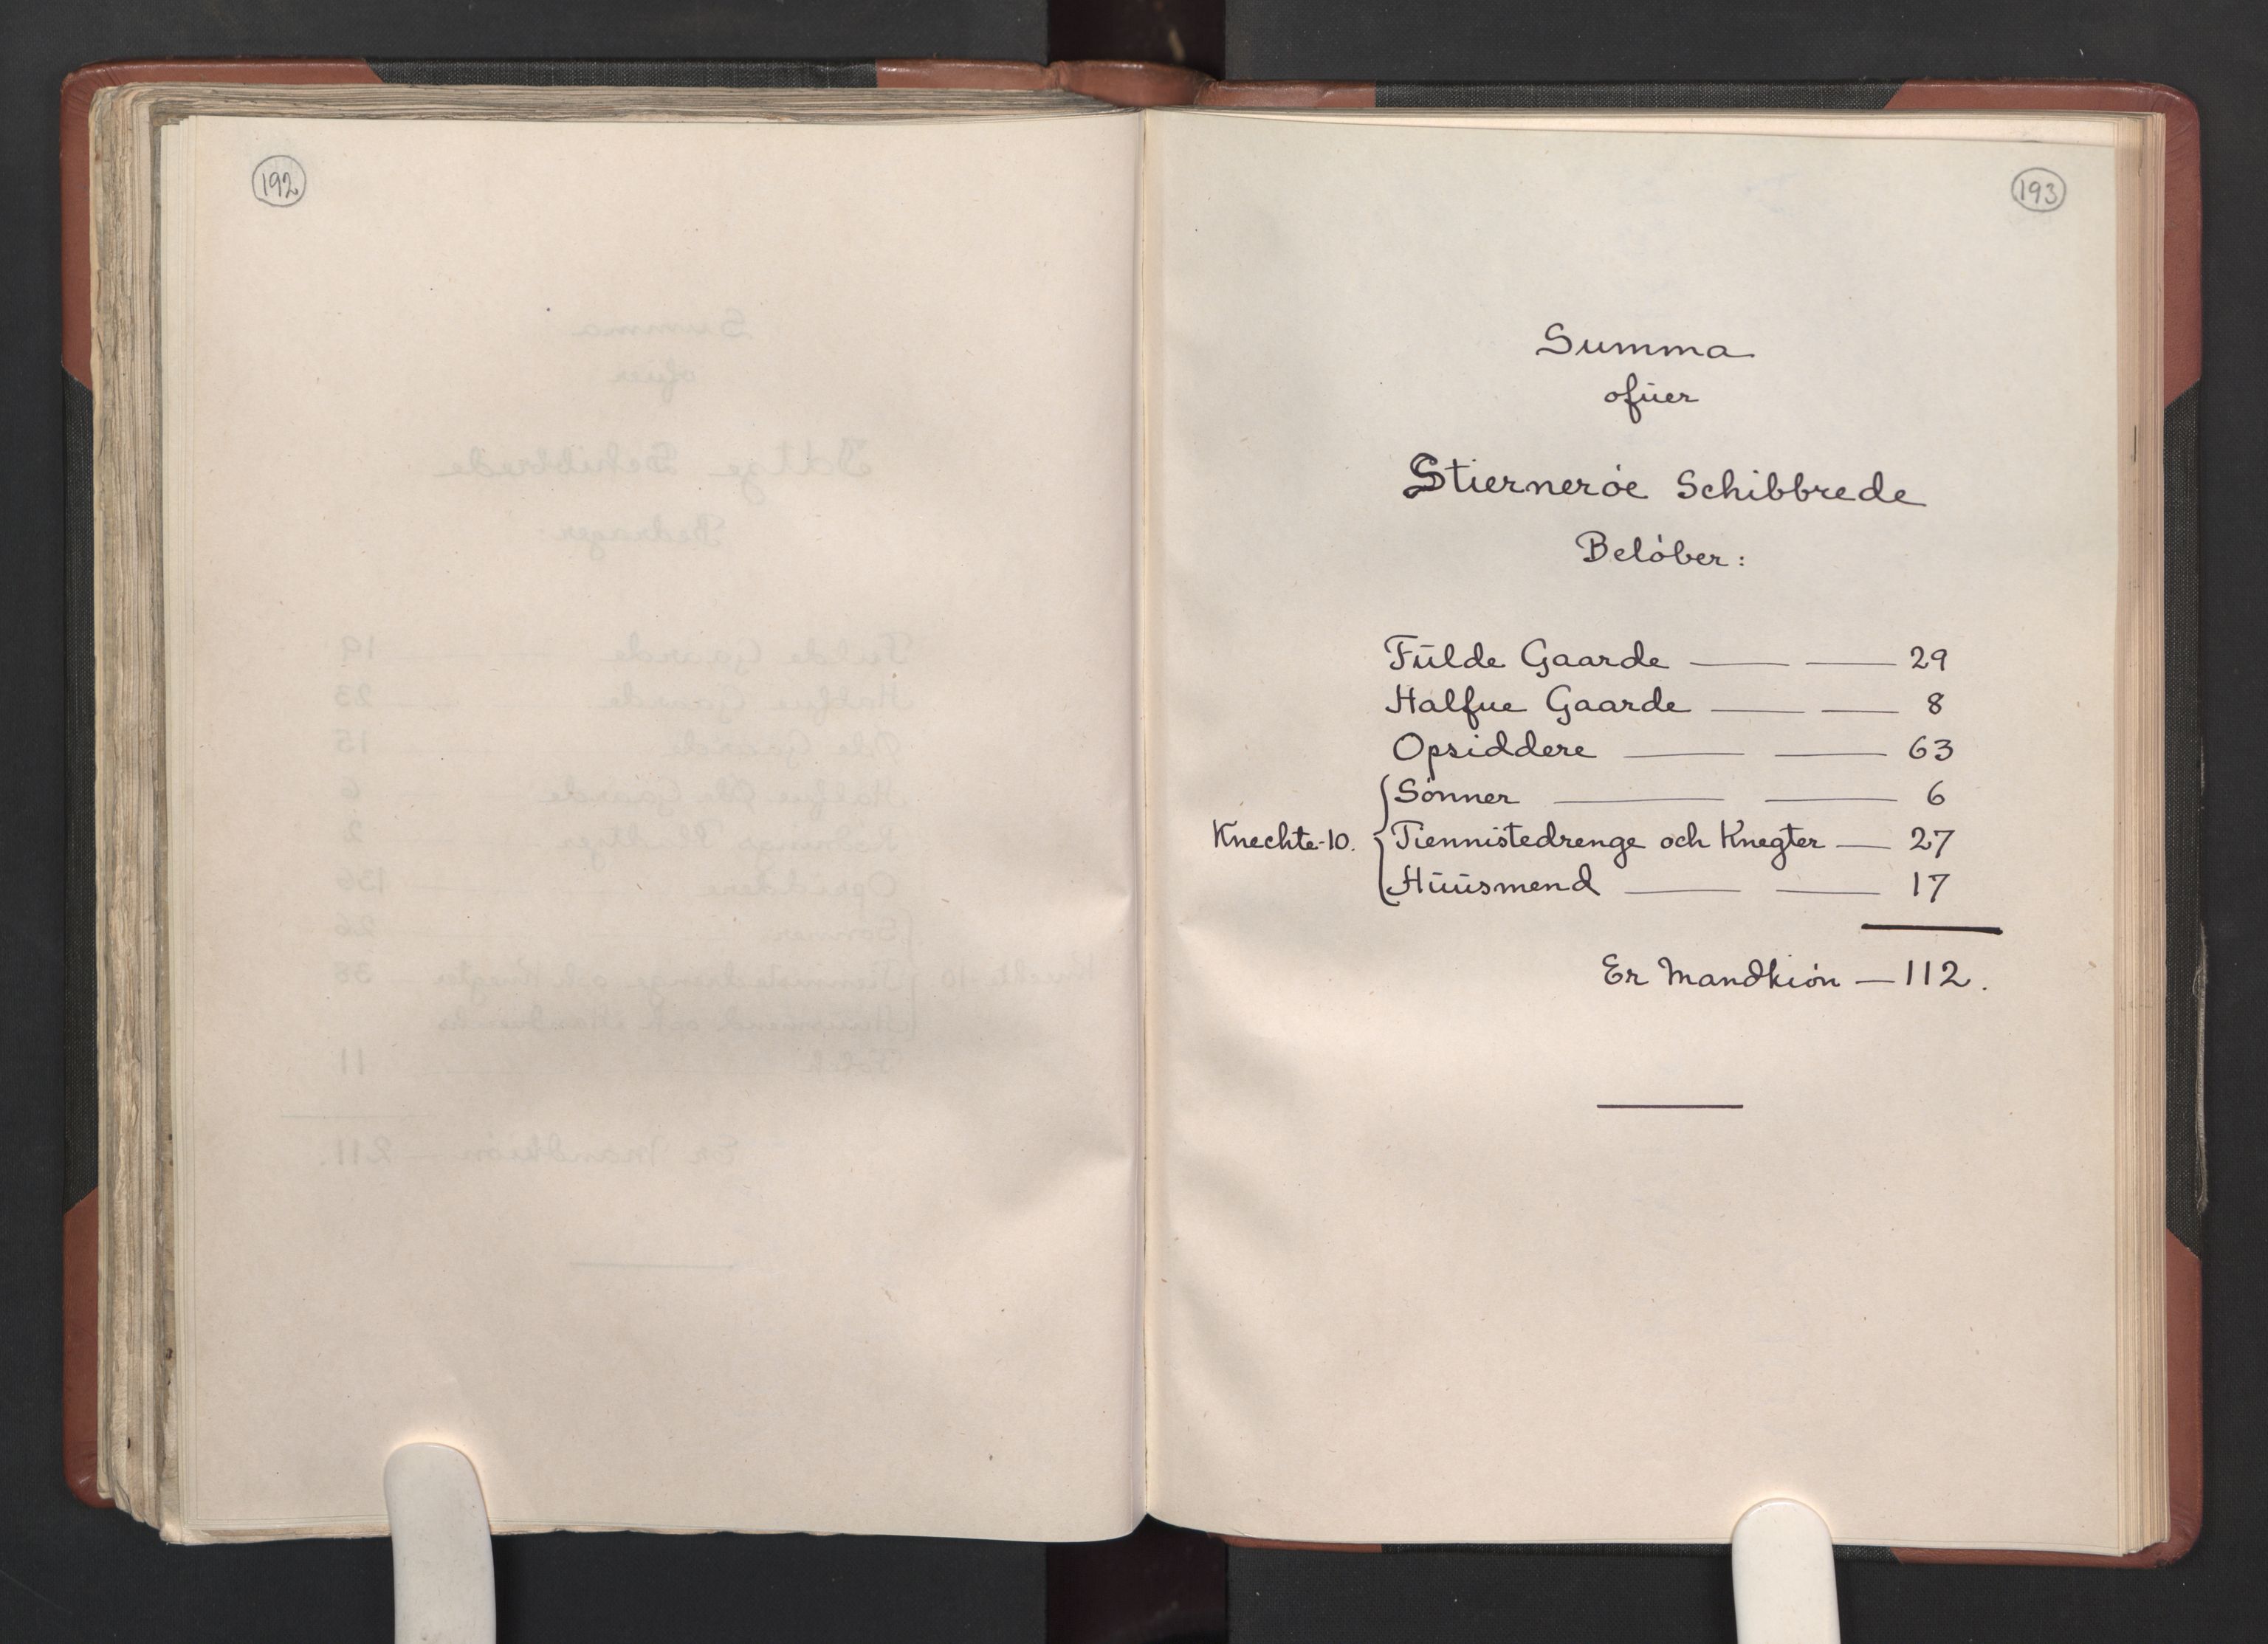 192
193
Summa
ofüer
Stiernerőe Schibbrede
Belőber:
Fülde Gaarde — — 29
Halfue Gaarde — — 8
Opsiddere — — 63
Sőnner — — 6
Knechte-10. Tiennistedrenge och Knegter — 27
Hüüsmend — — 17
Er Mandkiőn — 112.